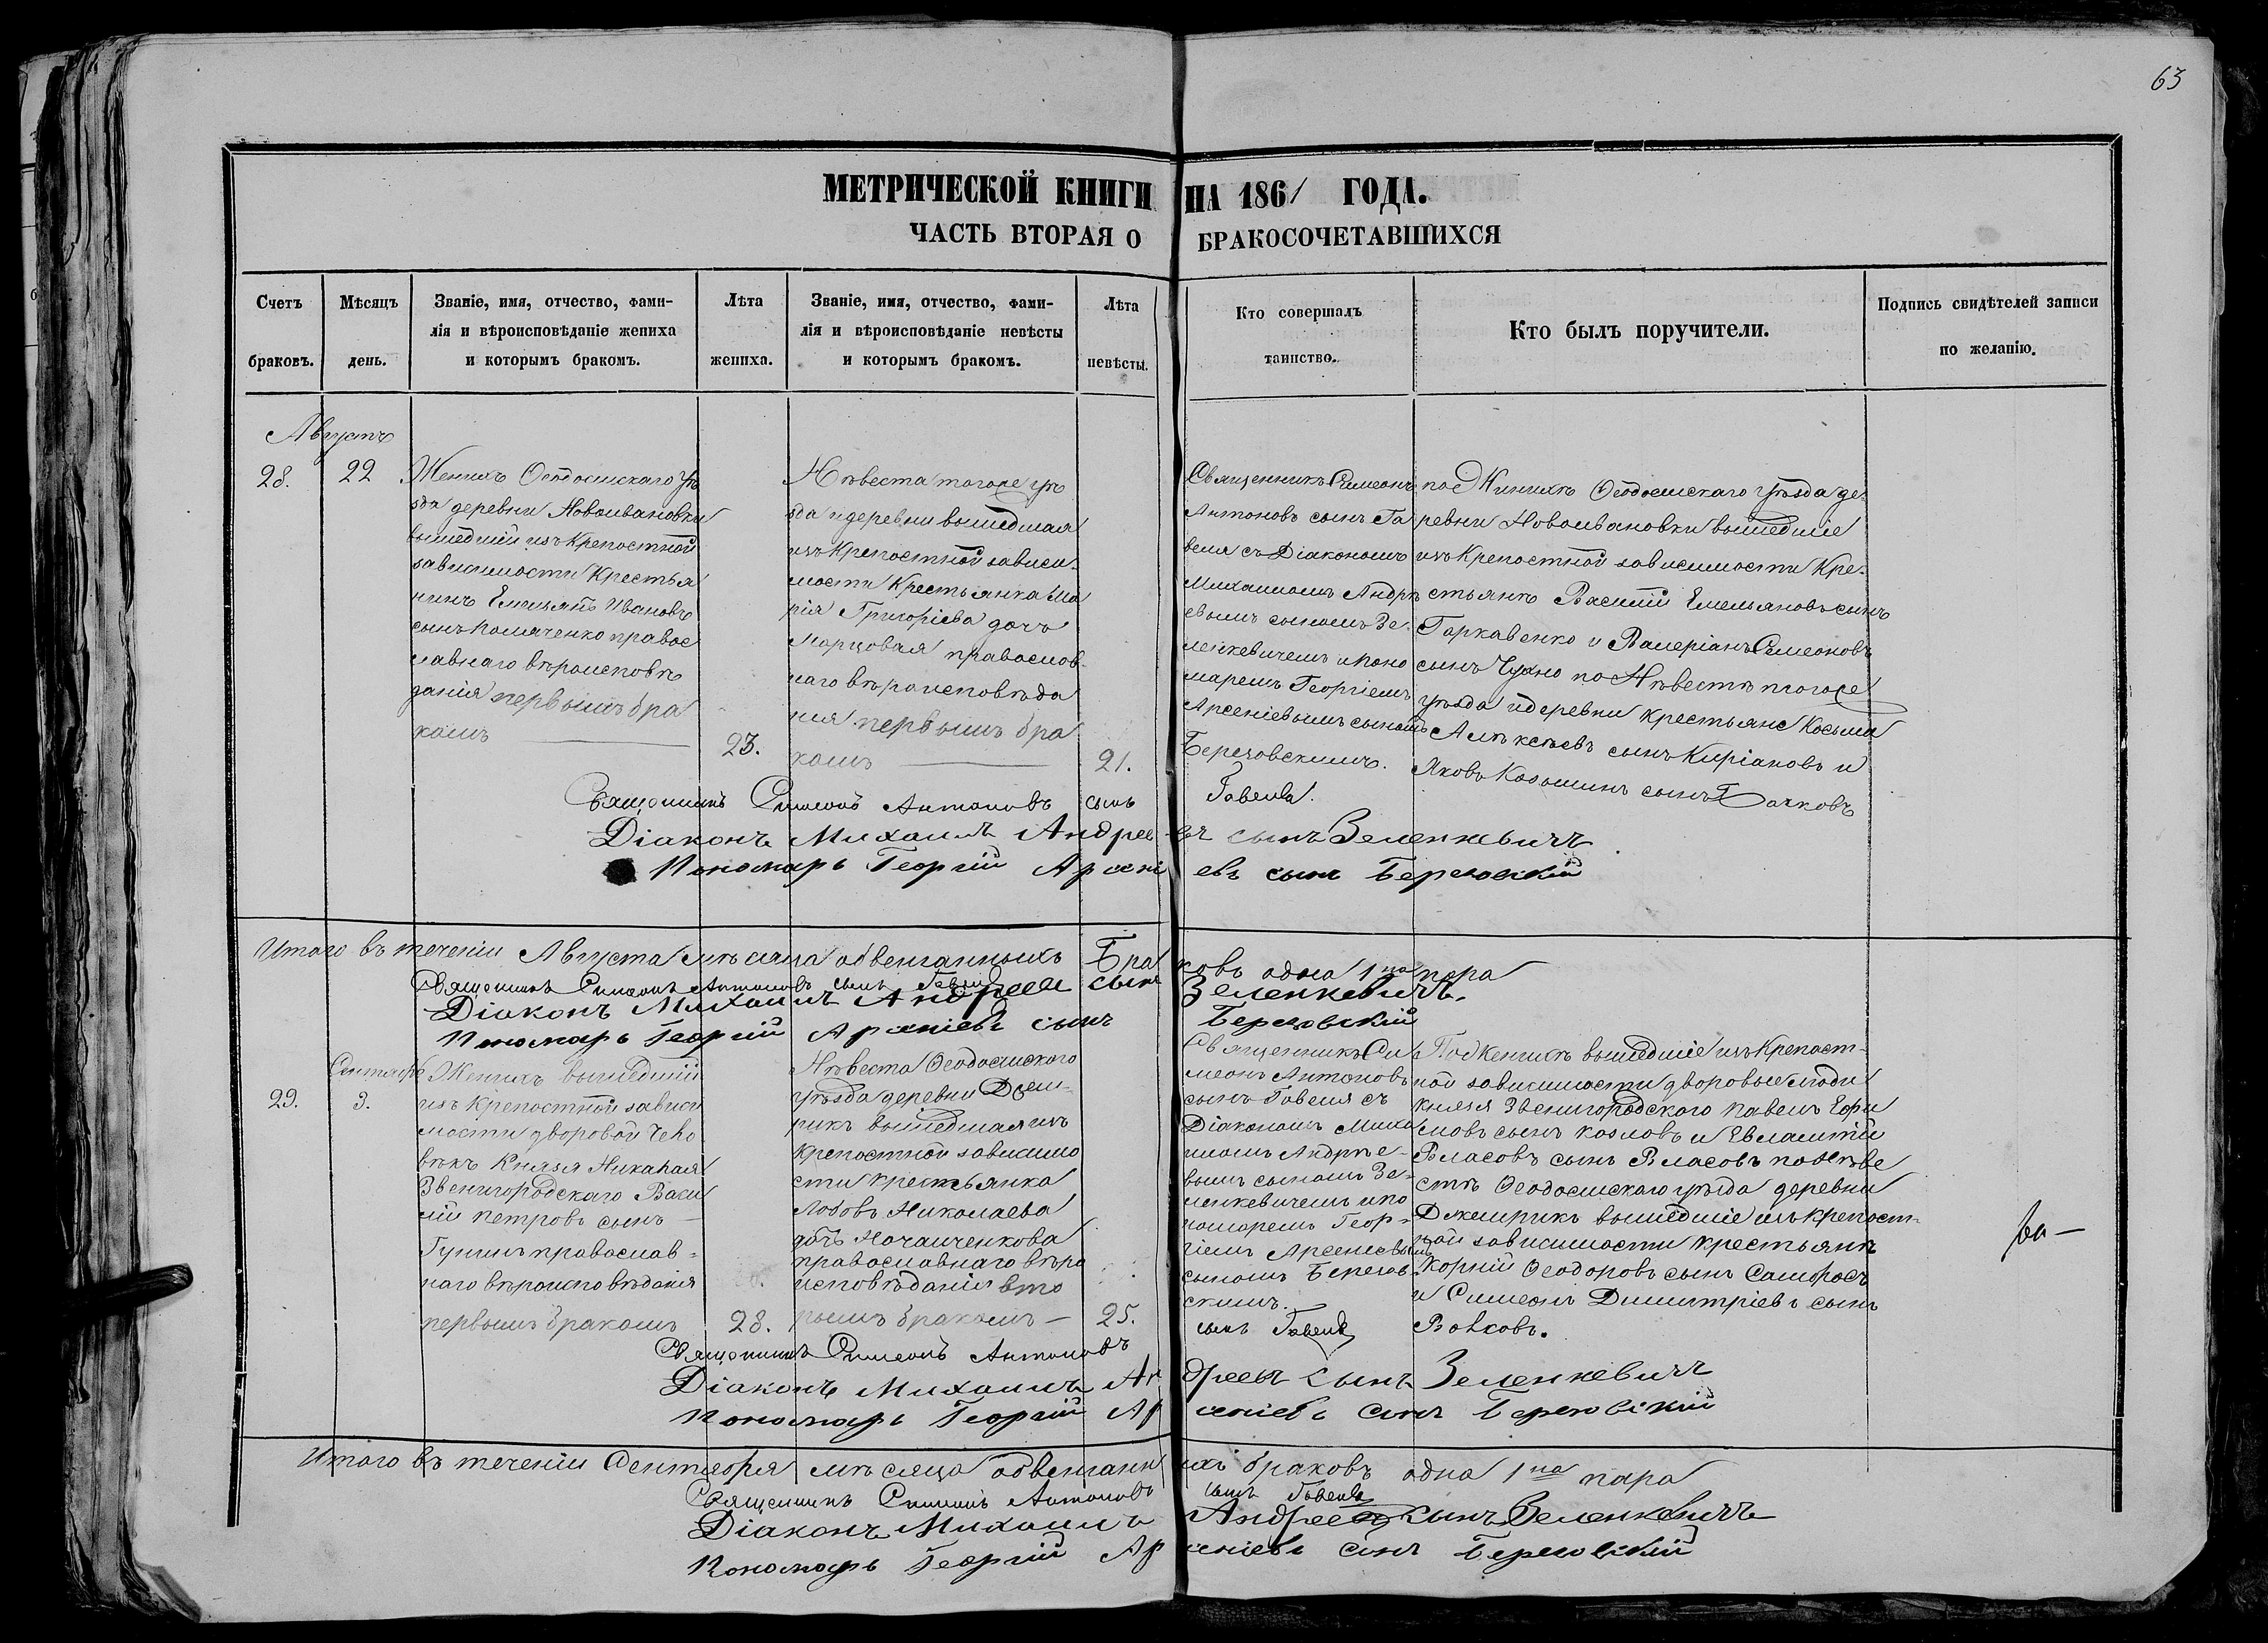 63
МЕТРИЧЕСКОЙ КНИГИ НА 1861 ГОДА.
ЧАСТЬ ВТОРАЯ О БРАКОСОЧЕТАВШИХСЯ
Счетъ браковъ.
Мѣсяцъ день.
Званіе, имя, отчество, фами-
лія и вѣроисповѣданіе жениха
и которымъ бракомъ.
Лѣта
жениха.
Званіе, имя, отчество, фами-
лія и вѣроисповѣданіе невѣсты
и которымъ бракомъ.
Лѣта
невѣсты.
Кто совершалъ
таинство.
Кто былъ поручители.
Подпись свидѣтелей записи
по желанію.
Августъ
28.
22
Женихъ Ѳеодосискаго уѣ
зда деревни Новоивановки
вышедшій изъ Крепостной
зависимости Крестья
нинъ Емельянъ Ивановъ
сынъ правос
лавнаго вѣроисповѣ
данія первымъ бра
комъ
23.
Невеста тогоже уѣ
зда и деревни вышедшая
изъ Крепостной зависи-
мости Крестьянка Ма
рія Григоріева дочь
Марцовая православ-
наго вѣроисповѣда
нія первымъ бра
комъ
21.
Священникъ Симеонъ
Антоновъ сынъ Га
веля съ Діакономъ
Михаиломъ Андрѣ
евымъ сыномъ Зе-
ленкевичемъ и поно
маремъ Георгіемъ
Арсеніевымъ сыномъ
Березовскимъ.
по Жинихѣ Ѳеодосискаго уѣзда де-
ревни Новоивановки вышедшіе
изъ Крепостной зависимости Кре-
стьянѣ Василій Емельяновъ сынъ
Гаркавенко и Валеріанъ Симеоновъ
сынъ Чухно по Невестѣ тогоже
уѣзда и деревни крестьяне Косьма
Алѣксѣевъ сынъ Киріаковъ и
Яковъ Козьминъ сынъ
Священникъ Симеонъ Антоновъ сынъ Гавеля.
Діаконъ Михаилъ Андреевъ сынъ Зеленкевичъ
Пономарь Георгій Арсеніевъ сынъ Березовскій
Итого въ теченіи Августа мѣсяца обвенчанныхъ Браковъ одна 1на пара
Священникъ Симеонъ Антоновъ сынъ Гавеля
Діаконъ Михаилъ Андреевъ сынъ Зеленкевичъ.
Пономарь Георгій Арсеніевъ сынъ Березовскій
Сентябрь
29.
3.
Женихъ вышедшій
изъ Крепостной зависи
мости дворовой чело
вѣкъ Князя Николая
Звенигородскаго Васи
лій Петровъ сынъ
православ-
наго вѣроисповѣданія
первымъ бракомъ
28.
Невеста Ѳеодосиского
уѣзда деревни Джем-
рикъ вышедшая изъ
Крепостной зависимо
сти крестьянка
Любовь Николаева
дочь
православнаго вѣро
исповѣданія вто
рымъ бракомъ
25.
Священникъ Си
меонъ Антоновъ
сынъ Гавеля съ
Діакономъ Миха
иломъ Андрѣе-
вымъ сыномъ Зе-
ленкевичемъ и по
номаремъ Геор-
гіемъ Арсеніевымъ
сыномъ Березов-
скимъ.
По Женихѣ вышедшіе изъ Крепост-
ной зависимости дворовые люди
князя Звенигородского Павелъ Ефи
мовъ сынъ Козловъ и Евлампій
Власовъ сынъ Власовъ по Невѣ
стѣ Ѳеодосискаго уѣзда деревни
Джемрикъ вышедшіе изъ крепост-
ной зависимости крестьянѣ
Корній Ѳеодоровъ сынъ
и Симеонъ Димитріевъ сынъ
Волковъ.
Священникъ Симеонъ Антоновъ сынъ Гавеля
Діаконъ Михаилъ Андреевъ сынъ Зеленкевичъ
Пономарь Георгій Арсеніевъ сынъ Березовскій
Итого въ теченіи Сентября мѣсяца обвенчанныхъ браковъ одна 1на пара
Священникъ Симеонъ Антоновъ сынъ Гавеля
Діаконъ Михаилъ Андреевъ сынъ Зеленкевичъ
Пономарь Георгій Арсеніевъ сынъ Березовскій